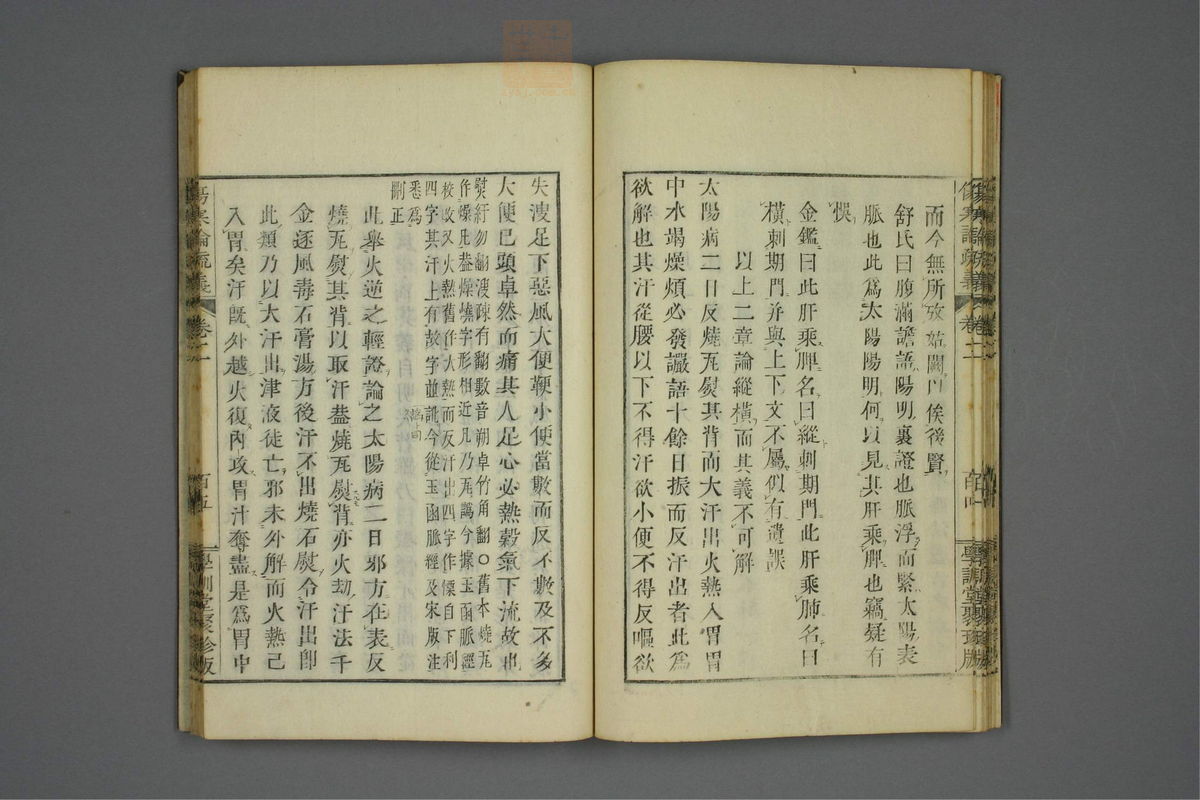 而今無所攷姑闕門俟後賢
舒氏曰腹滿譫語陽明裏證也脈浮而緊太陽表
脈也此爲太陽陽明何以見其肝乘脾也竊疑有
悞
金鑑曰此肝乘脾名曰縱刺期門此肝乘肺名曰
橫刺期門并與上下文不屬似有遺誤
以上二章論縱橫而其義不可解
太陽病二日反燒瓦熨其背而大汗出火熱入胃胃
中水竭燥煩必發讝語十餘日振而反汗出者此爲
欲解也其汗從腰以下不得汗欲小便不得反嘔欲
傷寒論疏義 卷二 百四 學訓堂聚珍版
失溲足下惡風大便鞕小便當數而反不數及不多
大便已頭卓然而痛其人足心必熱穀氣下流故也
熨紆勿翻溲疎有翻數音朔卓竹角翻○舊本燒瓦
作燥凡蓋燥燒字形相近凡乃瓦譌今據玉函脈經
校改又火熱舊作大熱而反汗出四字作慄自下利
四字其汗上有故字並譌今從玉函脈經及宋版注
悉爲
刪正
此舉火逆之輕證論之太陽病二日邪方在表反
燒瓦熨其背以取汗蓋燒瓦熨背亦火劫汗法千
金逐風毒石膏湯方後汗不出燒石熨令汗出卽
此類乃以大汗出津液徒亡邪未外解而火熱已
入胃矣汗旣外越火復內攻胃汁奪盡是爲胃中
傷寒論疏義 卷二 百五 學訓堂聚珍版